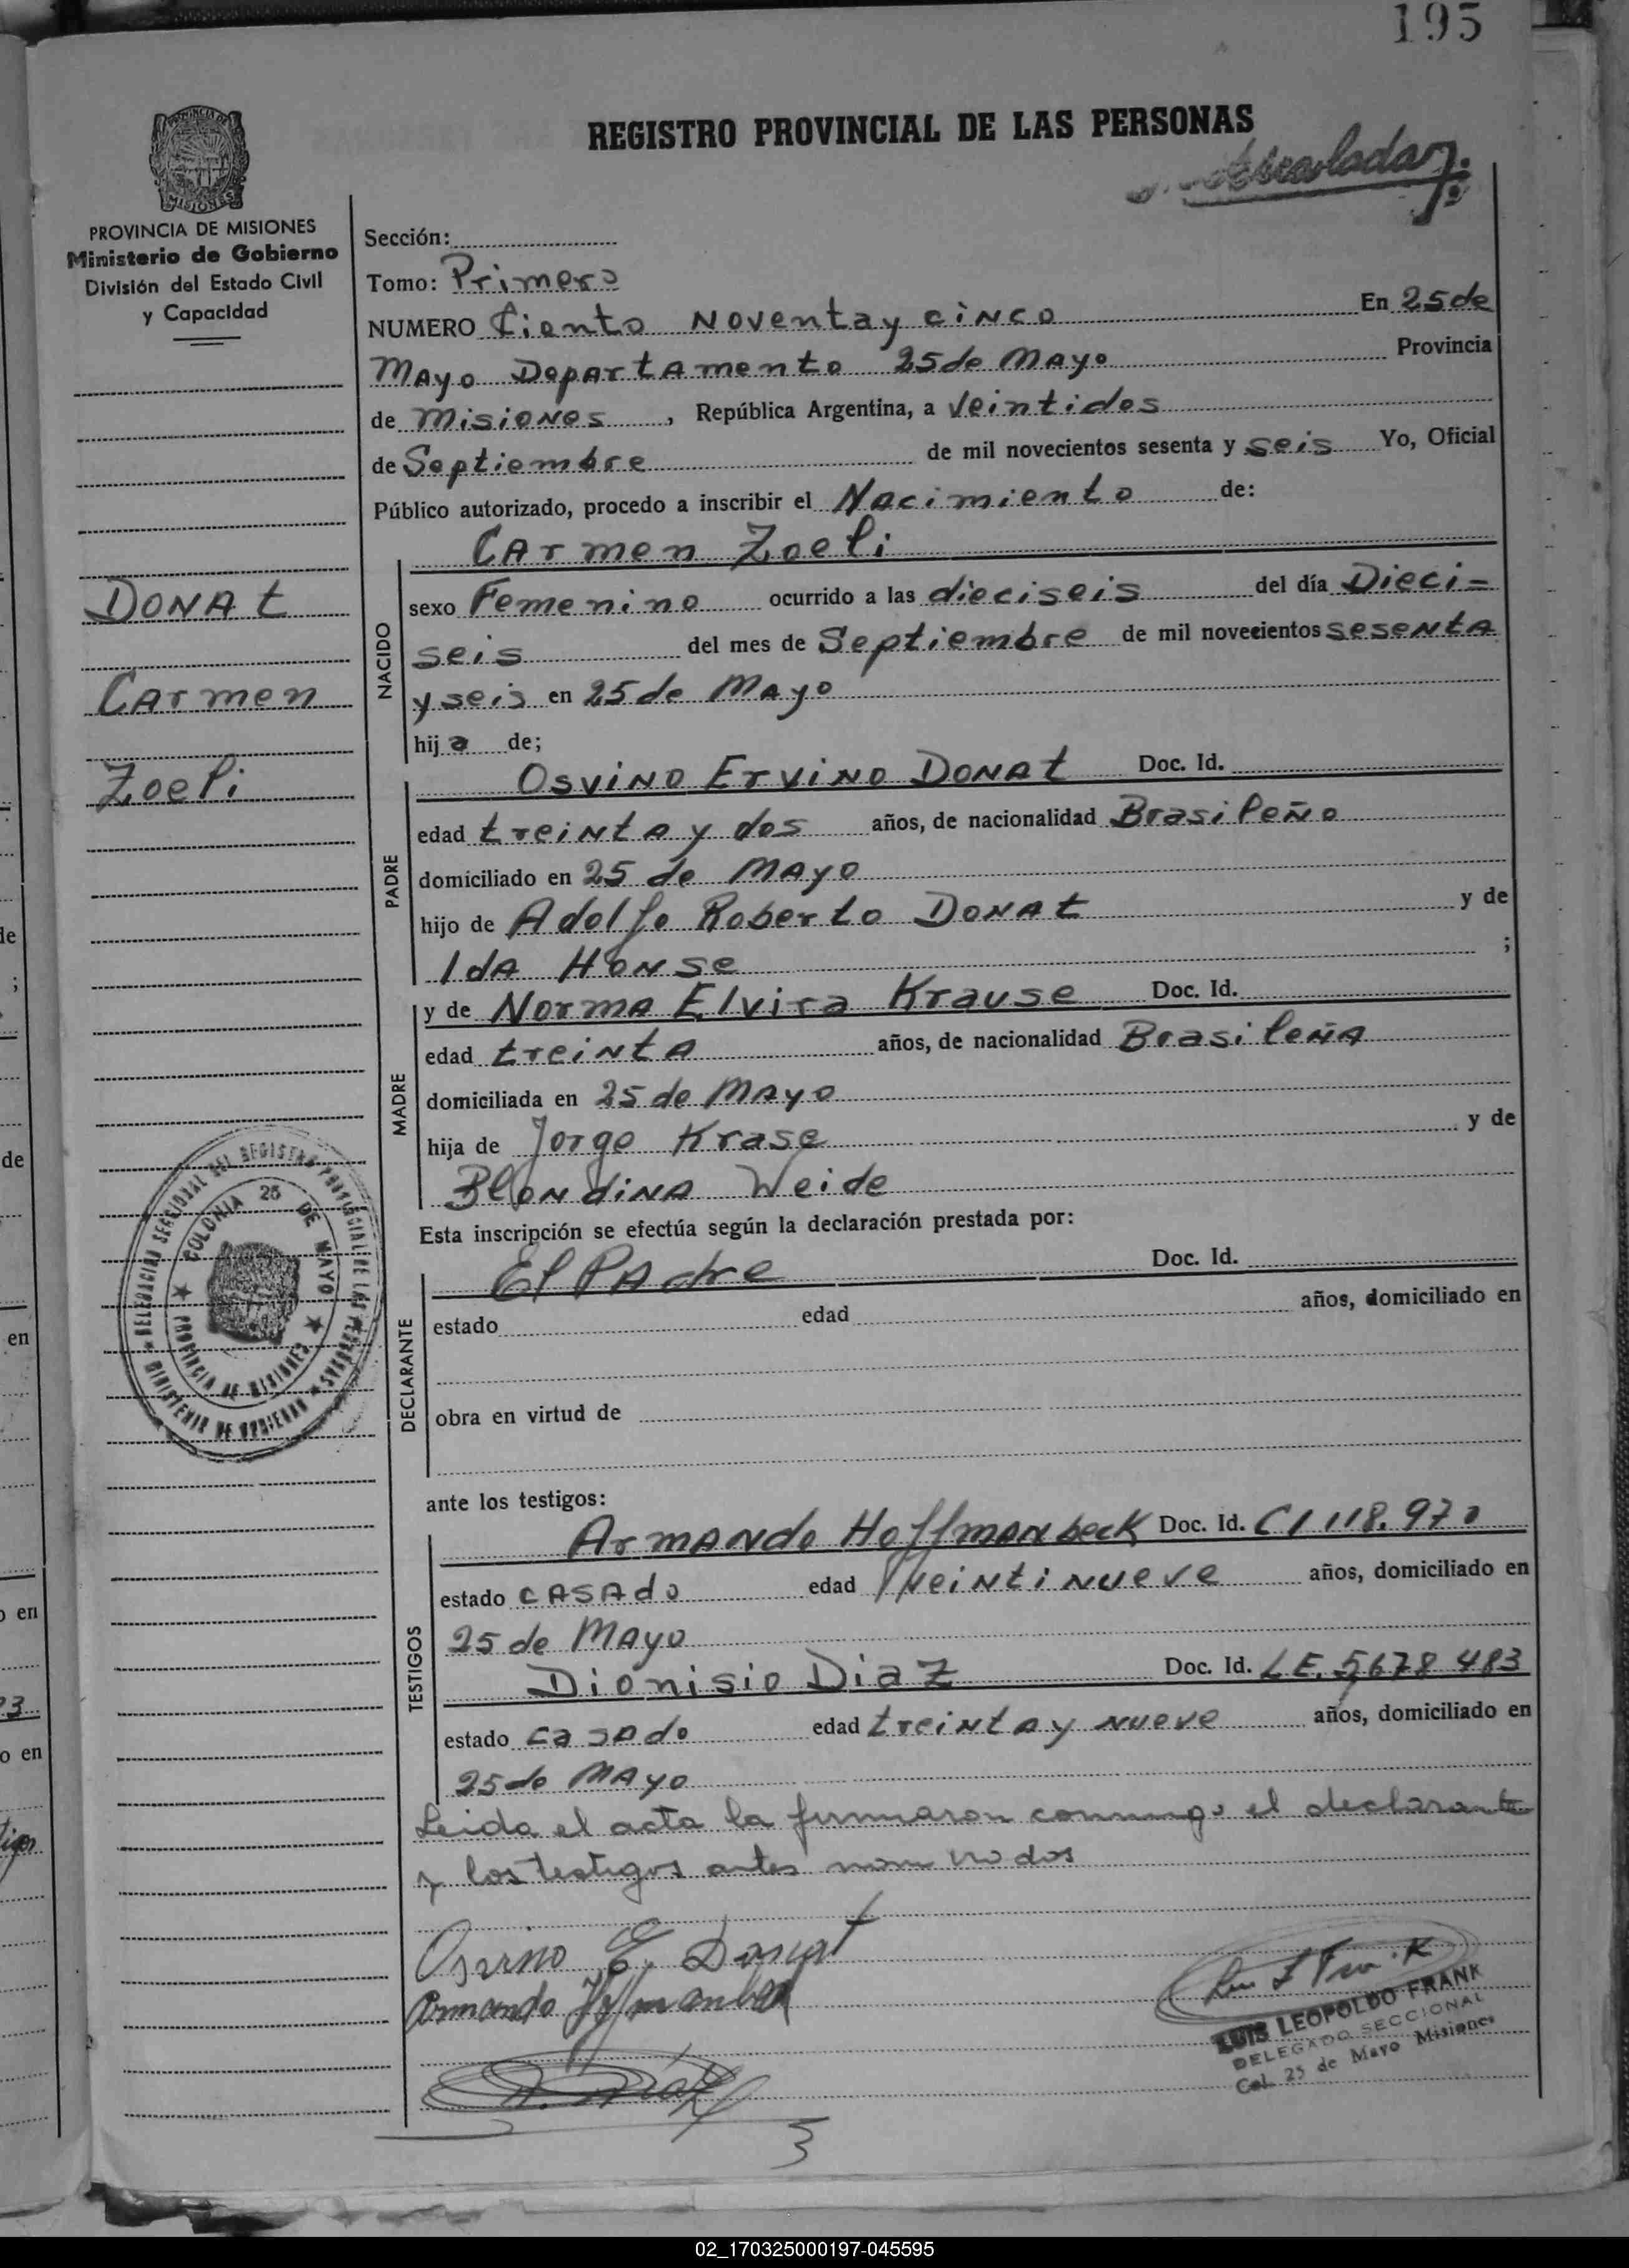 195
REGISTRO PROVINCIAL DE LAS PERSONAS
PROVINCIA DE MISIONES
Ministerio de Gobierno
División del Estado Civil
y Capacidad
Sección:
Tomo: Primero
NUMERO Ciento Noventa y cinco En 25 de
Mayo Departamento 25 de Mayo Provincia
de Misiones, República Argentina, a Veintidos
de Septiembre de mil novecientos sesenta y seis Yo, Oficial
Público autorizado, procedo a inscribir el Nacimiento de:
NACIDO
Carmen Zoeli
sexo Femenino ocurrido a las dieciseis del día Dieci=
seis del mes de Septiembre de mil novecientos sesenta
y seis en 25 de Mayo
hija de;
DONAt
Carmen
Zoeli
PADRE
Osvino Ervino Donat Doc. Id.
edad treinta y dos años, de nacionalidad Brasileño
domiciliado en 25 de Mayo
hijo de Adolfo Roberto Donat y de
Ida Honse ;
MADRE
y de Norma Elvira Krause Doc. Id.
edad treinta años, de nacionalidad Brasileña
domiciliada en 25 de Mayo
hija de Jorge Krase y de
Blondina Weide
Esta inscripción se efectúa según la declaración prestada por:
DECLARANTE
El Padre Doc. Id.
estado edad años, domiciliado en
obra en virtud de
DELEGACIÓN SECCIONAL DEL REGISTRO PROVINCIAL DE LAS PERSONAS
MINISTERIO DE GOBIERNO
COLONIA 25 DE MAYO
PROVINCIA DE MISIONES
ante los testigos:
TESTIGOS
Armando Hoffmanbeck Doc. Id. CI 118.970
estado casado edad Veintinueve años, domiciliado en
25 de Mayo
Dionisio Diaz Doc. Id. LE. 5678 483
estado casado edad treinta y nueve años, domiciliado en
25 de Mayo
Leida el acta la firmaron conmigo el declarante
y los testigos antes nombrados
Osvino E. Donat
Armando Hoffmanbeck
D. Diaz
LUIS LEOPOLDO FRANK
DELEGADO SECCIONAL
Col. 25 de Mayo Misiones
02_170325000197-045595